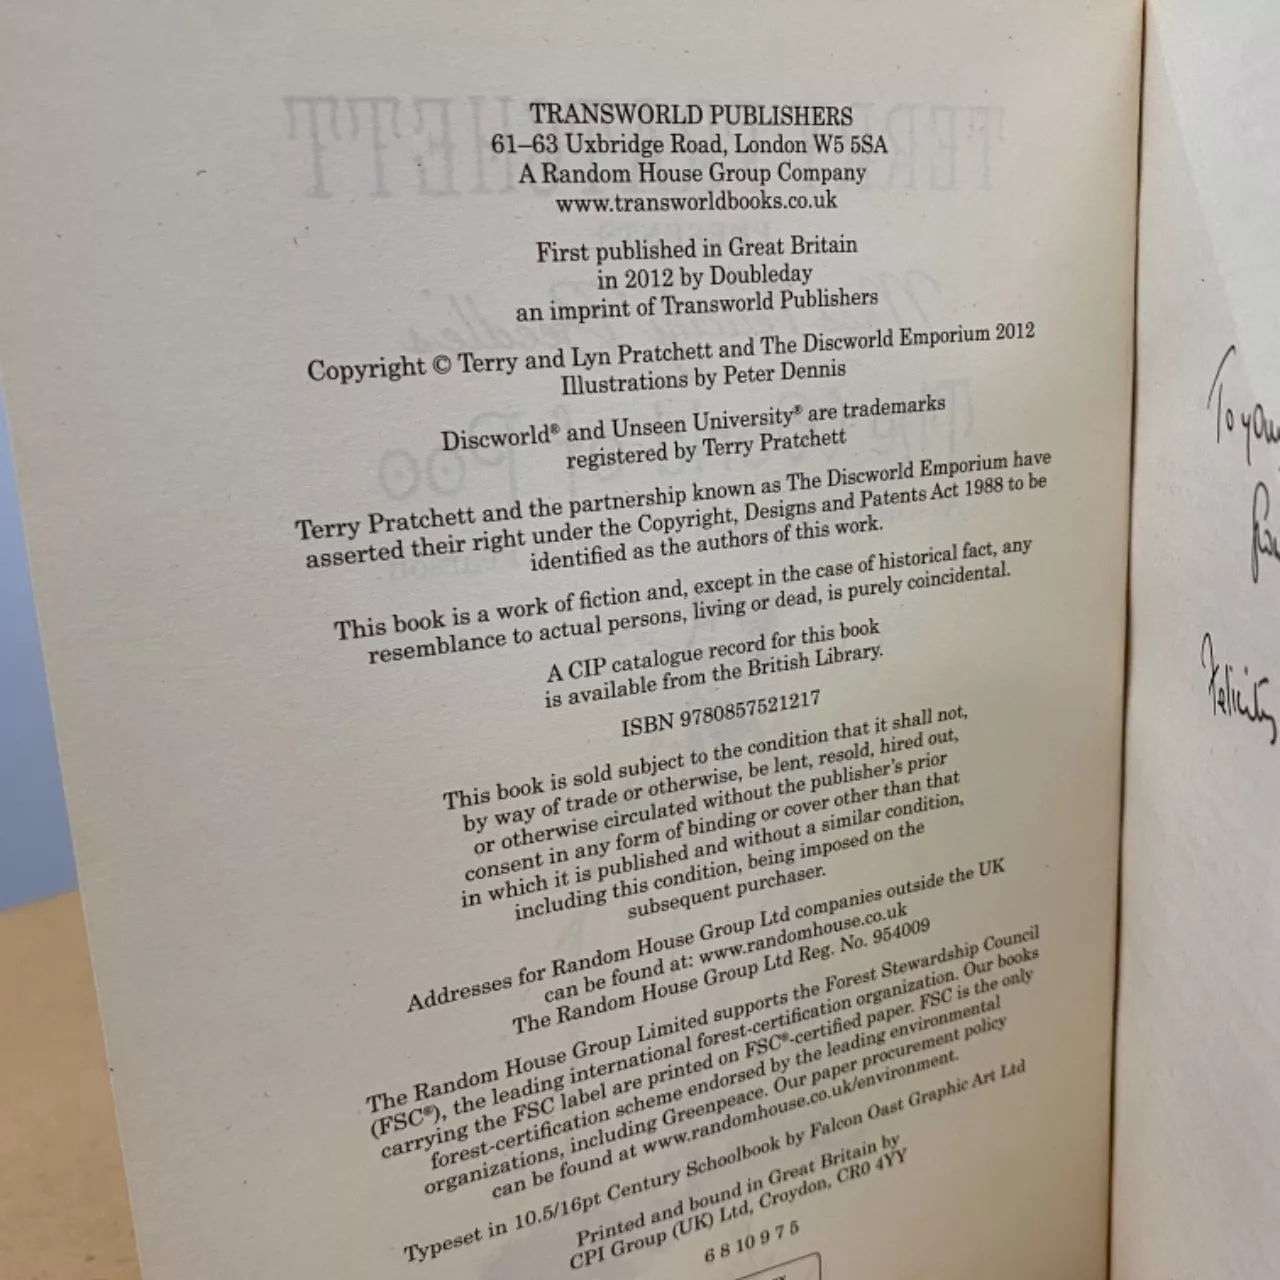 TRANSWORLD PUBLISHERS
61–63 Uxbridge Road, London W5 5SA
A Random House Group Company
www.transworldbooks.co.uk
First published in Great Britain
in 2012 by Doubleday
an imprint of Transworld Publishers
Copyright © Terry and Lyn Pratchett and The Discworld Emporium 2012
Illustrations by Peter Dennis
Discworld® and Unseen University® are trademarks
registered by Terry Pratchett
Terry Pratchett and the partnership known as The Discworld Emporium have
asserted their right under the Copyright, Designs and Patents Act 1988 to be
identified as the authors of this work.
This book is a work of fiction and, except in the case of historical fact, any
resemblance to actual persons, living or dead, is purely coincidental.
A CIP catalogue record for this book
is available from the British Library.
ISBN 9780857521217
This book is sold subject to the condition that it shall not,
by way of trade or otherwise, be lent, resold, hired out,
or otherwise circulated without the publisher's prior
consent in any form of binding or cover other than that
in which it is published and without a similar condition,
including this condition, being imposed on the
subsequent purchaser.
Addresses for Random House Group Ltd companies outside the UK
can be found at: www.randomhouse.co.uk
The Random House Group Ltd Reg. No. 954009
The Random House Group Limited supports the Forest Stewardship Council
(FSC®), the leading international forest-certification organization. Our books
carrying the FSC label are printed on FSC®-certified paper. FSC is the only
forest-certification scheme endorsed by the leading environmental
organizations, including Greenpeace. Our paper procurement policy
can be found at www.randomhouse.co.uk/environment.
Typeset in 10.5/16pt Century Schoolbook by Falcon Oast Graphic Art Ltd
Printed and bound in Great Britain by
CPI Group (UK) Ltd, Croydon, CR0 4YY
6 8 10 9 7 5
To
Felicity